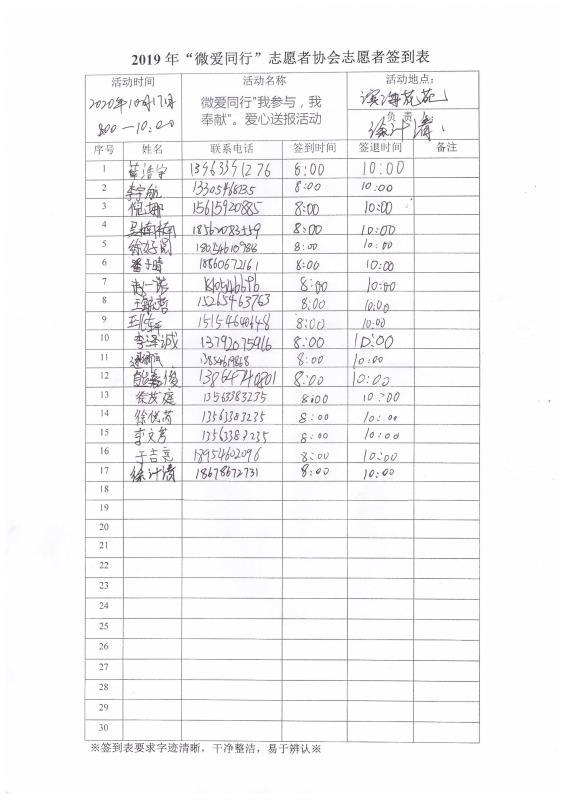 2019年“微爱同行”志愿者协会志愿者签到表
活动时间 活动名称 活动地点：
2020年10月17日 8:00—10:00 微爱同行"我参与，我奉献"。爱心送报活动 滨海苑苑
负责 徐计清
序号 姓名 联系电话 签到时间 签退时间 备注
1 8:00 10:00
2 李宇航 8:00 10:00
3 倪娜 15615920885 8:00 10:00
4 吴楠楠 18562083559 8:00 10:00
5 徐好圆 8:00 10:00
6 18860672161 8:00 10:00
7 8:00 10:00
8 15265463763 8:00 10:00
9 15154640648 8:00 10:00
10 李泽诚 13792075916 8:00 10:00
11 8:00 10:00
12 13864740801 8:00 10:00
13 徐茂庭 13563383235 8:00 10:00
14 徐悦芮 13563383235 8:00 10:00
15 李文芳 13563383235 8:00 10:00
16 于吉亮 18954602096 8:00 10:00
17 徐计清 18678672731 8:00 10:00
18
19
20
21
22
23
24
25
26
27
28
29
30
※签到表要求字迹清晰，干净整洁，易于辨认※